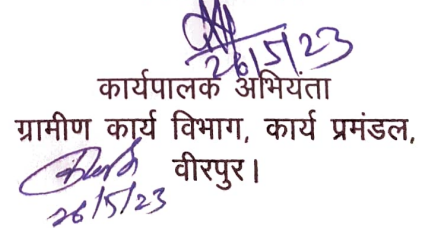 26/5/23
कार्यपालक अभियंता
ग्रामीण कार्य विभाग, कार्य प्रमंडल,
वीरपुर।
26/5/23